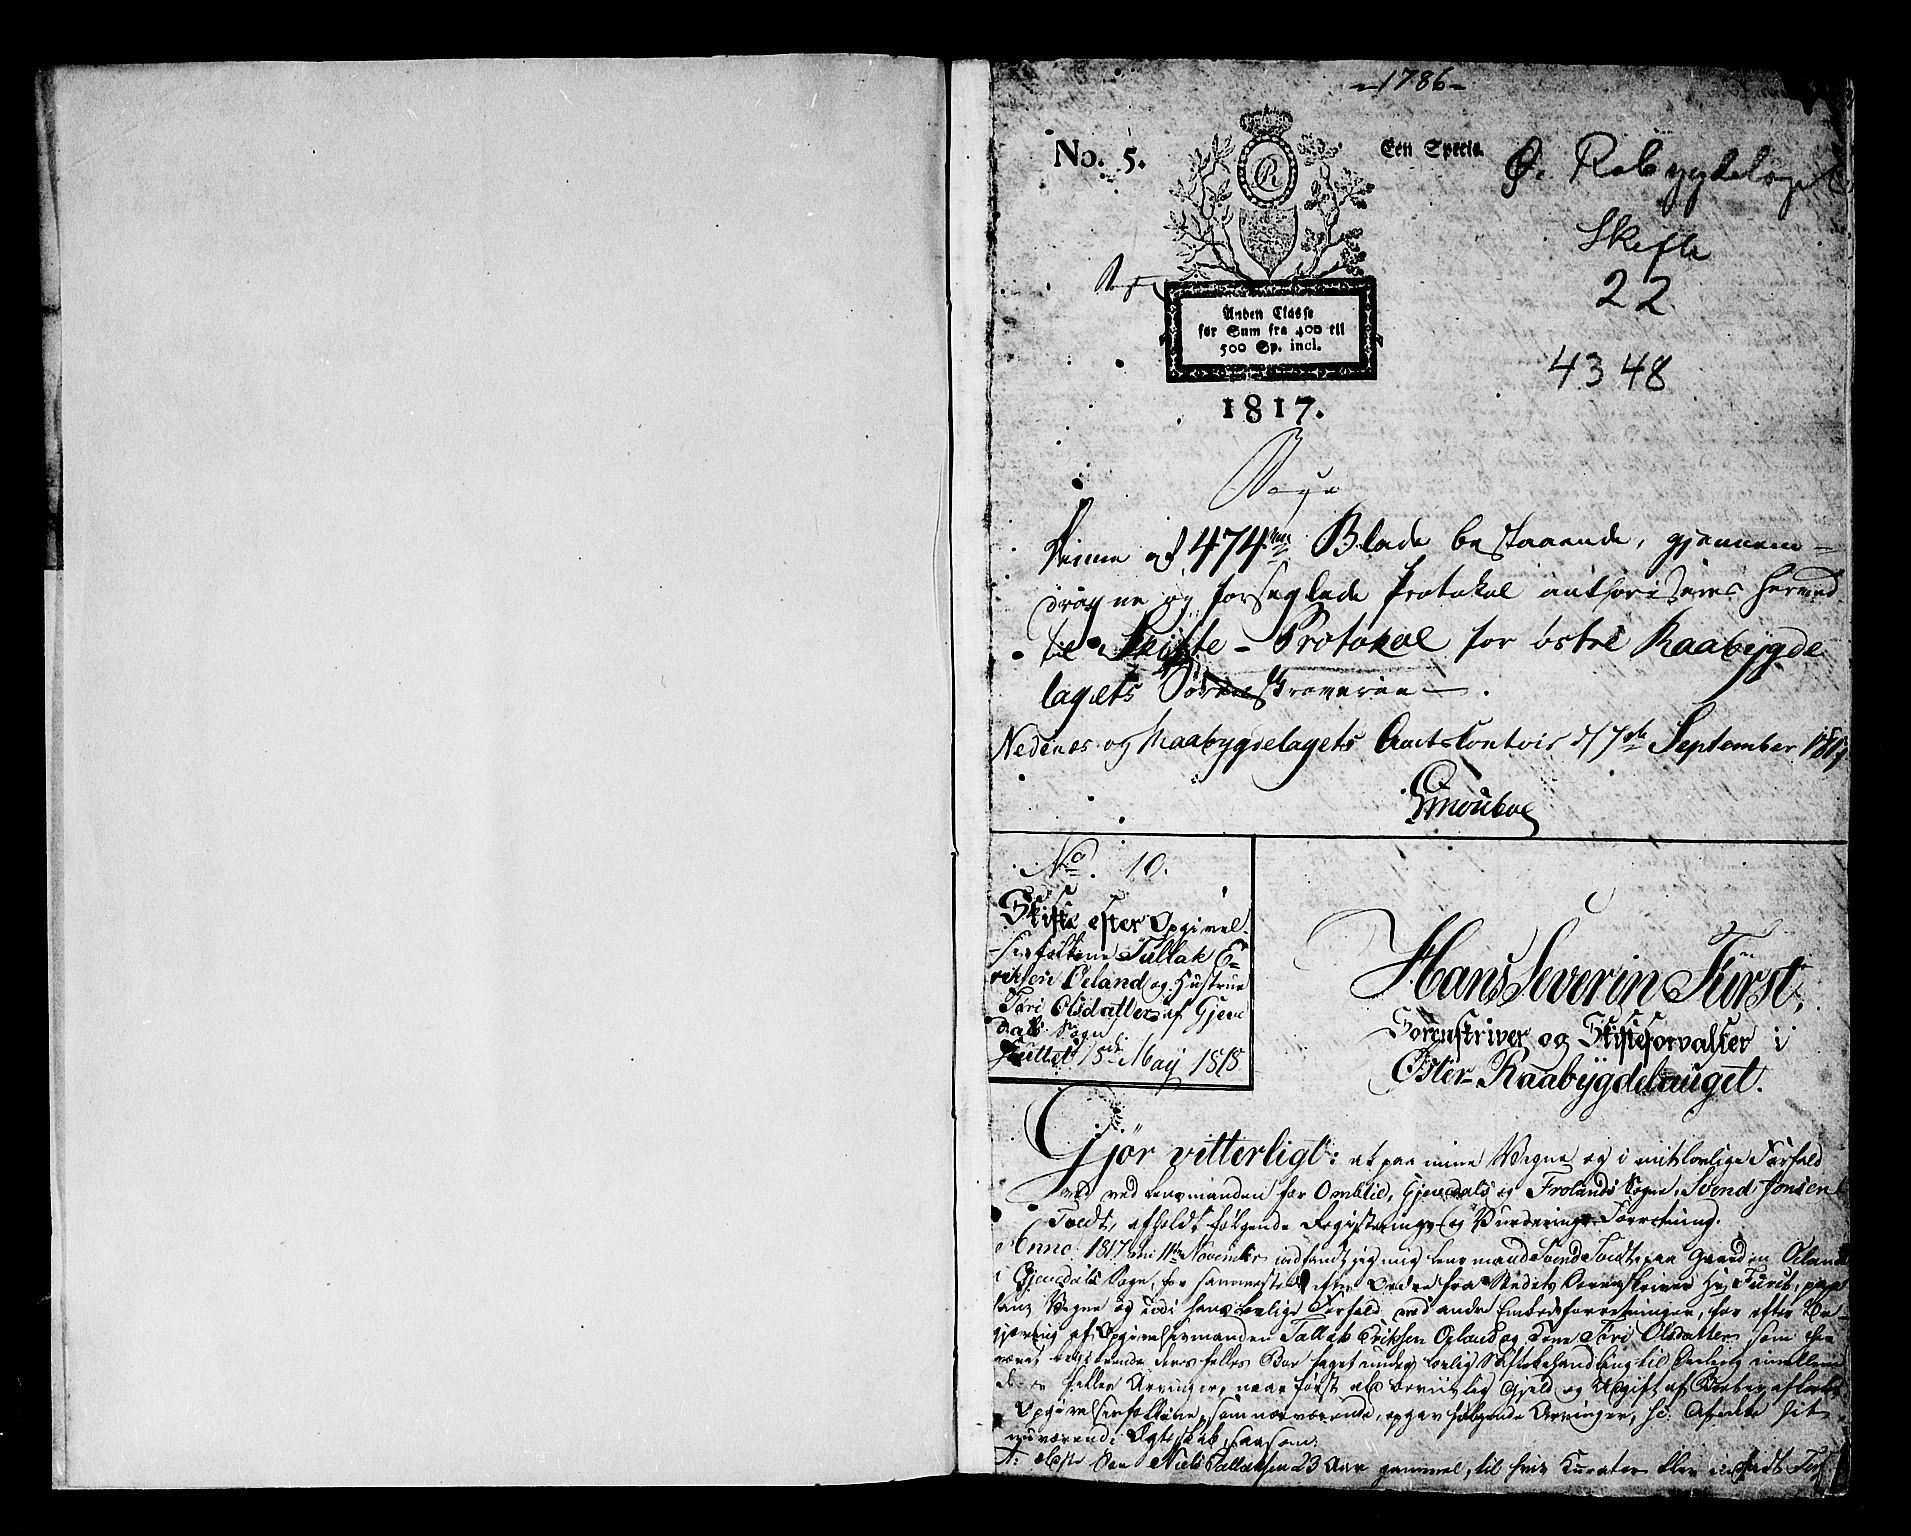 1786
No. 5.
Een Specie.
R
Ø. Rabygdelaget
Skifte
22
4348
Anden Classe
for Sum fra 400 till
500 Sp. incl.
1817.
Denne af 474 Blade bestaaende, gjennem-
dragne og forseglede Protokol authoriseres hermed
til Skifte-Protokol for østre Raabygde
lagets Sorenskriverie.
Nedenes og Raabygdelagets Amtscontoir d/7de September 1817
No. 10.
Skifte efter Opgivel-
sesfolkene Tallak E-
riksen Øeland og Hustrue
Tori Olsdatter af Gjev
dals Sogn
sluttet 15de May 1818
Hans Severin Fürst,
Sorenskriver og Skifteforvalter i
Øster-Raabygdelauget.
Gjør vitterligt: at paa mine Vegne og i mit lovlige Forfald
ved Lensmanden for Omblie, Gjevdals og Frolands Sogne, Svend Jonsen
Tvedt, afholdt følgende Registrerings og Vurderings Forretning.
Anno 1817 den 11te November indfandt jeg mig Lensmand Svend Tvedt paa Gaarden Øland
i Gjevdals Sogn, for sammesteds efter Ordre fra Stedets Sorenskriver Hr. Fürst, paa
hans Vegne og udi hans lovlige Forfald ved andre Embedsforretninger, for efter Be-
gjæring af Opgivelsesmanden Tallak Eriksen Øeland og Kone Tori Olsdatter som
deres fælles Boe taget under lovlig Skiftebehandling til Deeling imellem
fælles Arvinger, naar først al beviislig Gjeld og Udgift af Boet er
Opgivelsesfolkene, som nærværende, opgav følgende Arvinger,
nuværende Ægteskab, saasom:
A: ældste Søn Niels Tallaksen 23 Aar gammel, til hvis Curator blev indsadt